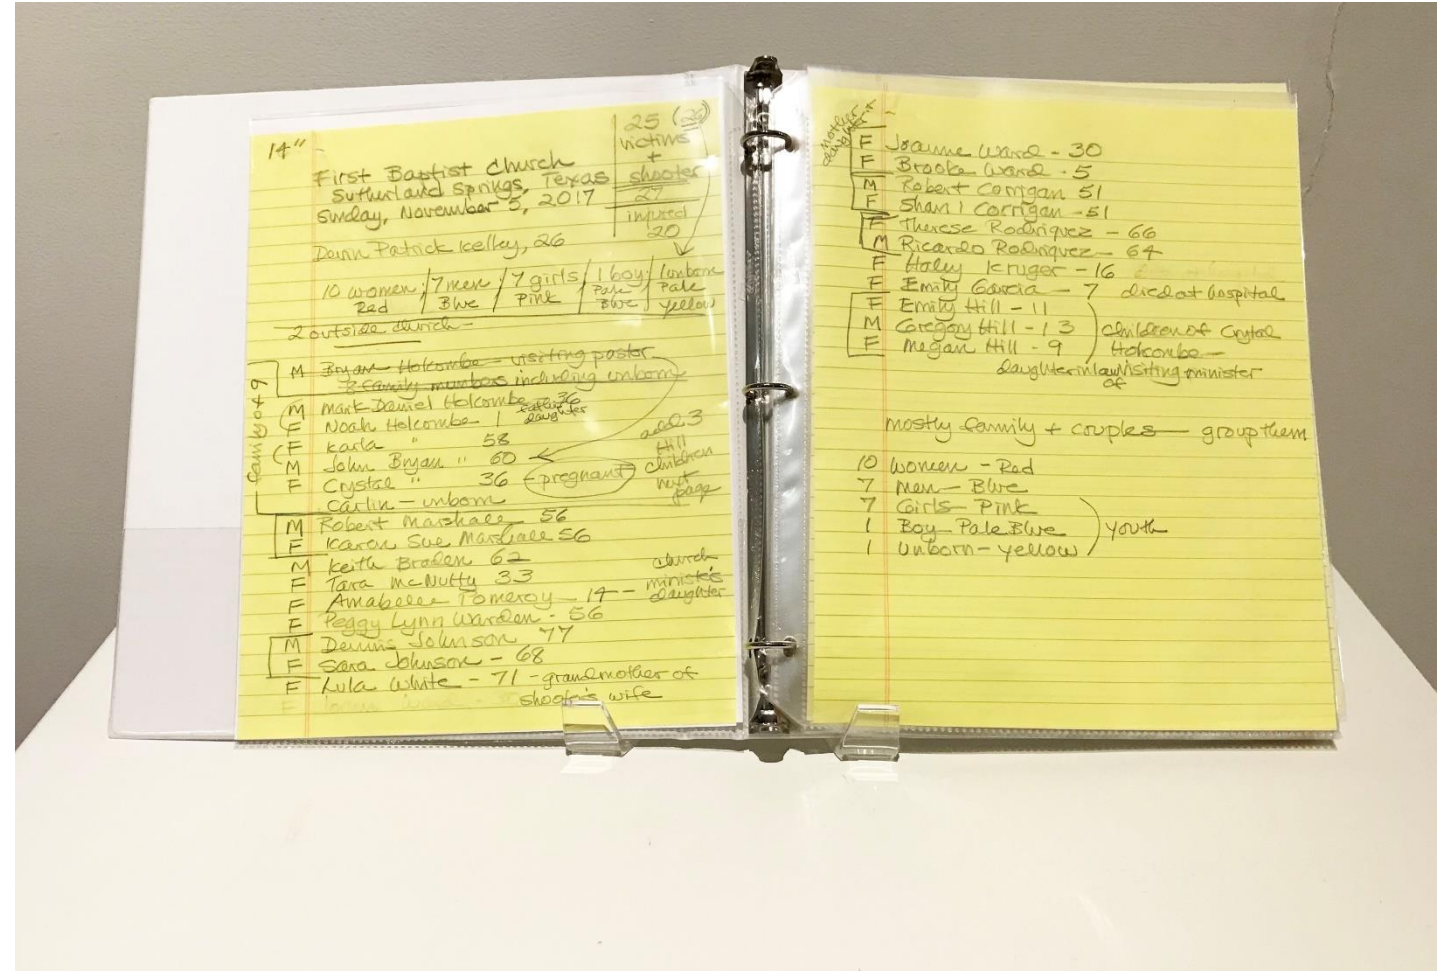 14"
25 (26)
victims
+
shooter
27
injured
20
First Baptist Church
Sutherland Springs, Texas
Sunday, November 5, 2017
Devin Patrick Kelley, 26
10 women / 7 men / 7 girls / 1 boy / 1 unborn
Red Blue Pink Pale Blue Pale yellow
2 outside church -
family of 9
M Bryan Holcombe - visiting pastor
8 family members including unborn
M Mark Daniel Holcombe - 36
F Noah Holcombe 1 father daughter
F Karla " 58
M John Bryan " 60
F Crystal " 36 - pregnant
Carlin - unborn
add 3
Hill
children
next
page
M Robert Marshall 56
F Karen Sue Marshall 56
M Keith Braden 62
F Tara McNutty 33
F Amabelle Pomeroy - 14 - church minister's daughter
F Peggy Lynn Warden - 56
M Dennis Johnson 77
F Sara Johnson - 68
F Lula White - 71 - grandmother of
shooter's wife
mother +
daughter
F Joanne Ward - 30
F Brooke Ward - 5
M Robert Corrigan 51
F Shani Corrigan - 51
F Therese Rodriquez - 66
M Ricardo Rodriquez - 64
F Haley Kruger - 16
F Emily Garcia - 7 died at hospital
F Emily Hill - 11
M Gregory Hill - 13 children of Crystal
F Megan Hill - 9 Holcombe -
daughter in law visiting minister
of
mostly family + couples - group them
10 women - Red
7 men - Blue
7 Girls - Pink
1 Boy - Pale Blue youth
1 unborn - yellow